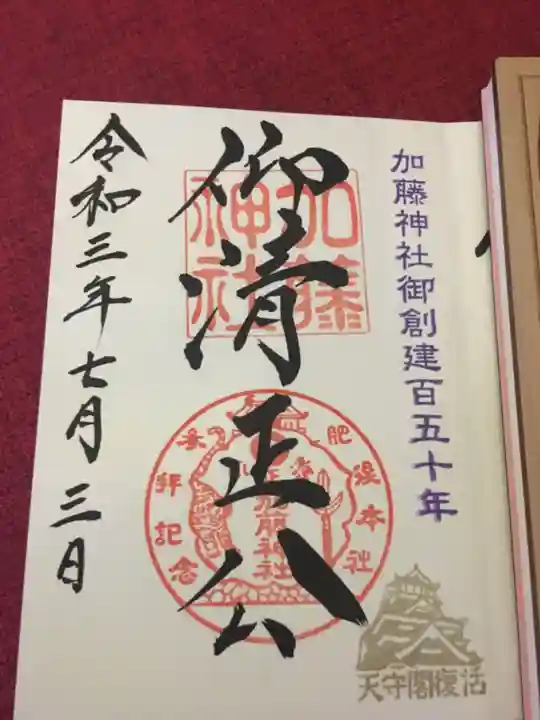 加藤神社御創建百五十年
仰清正公
加藤
神社
参拝記念
加藤神社
令和三年七月三日
天守閣復活